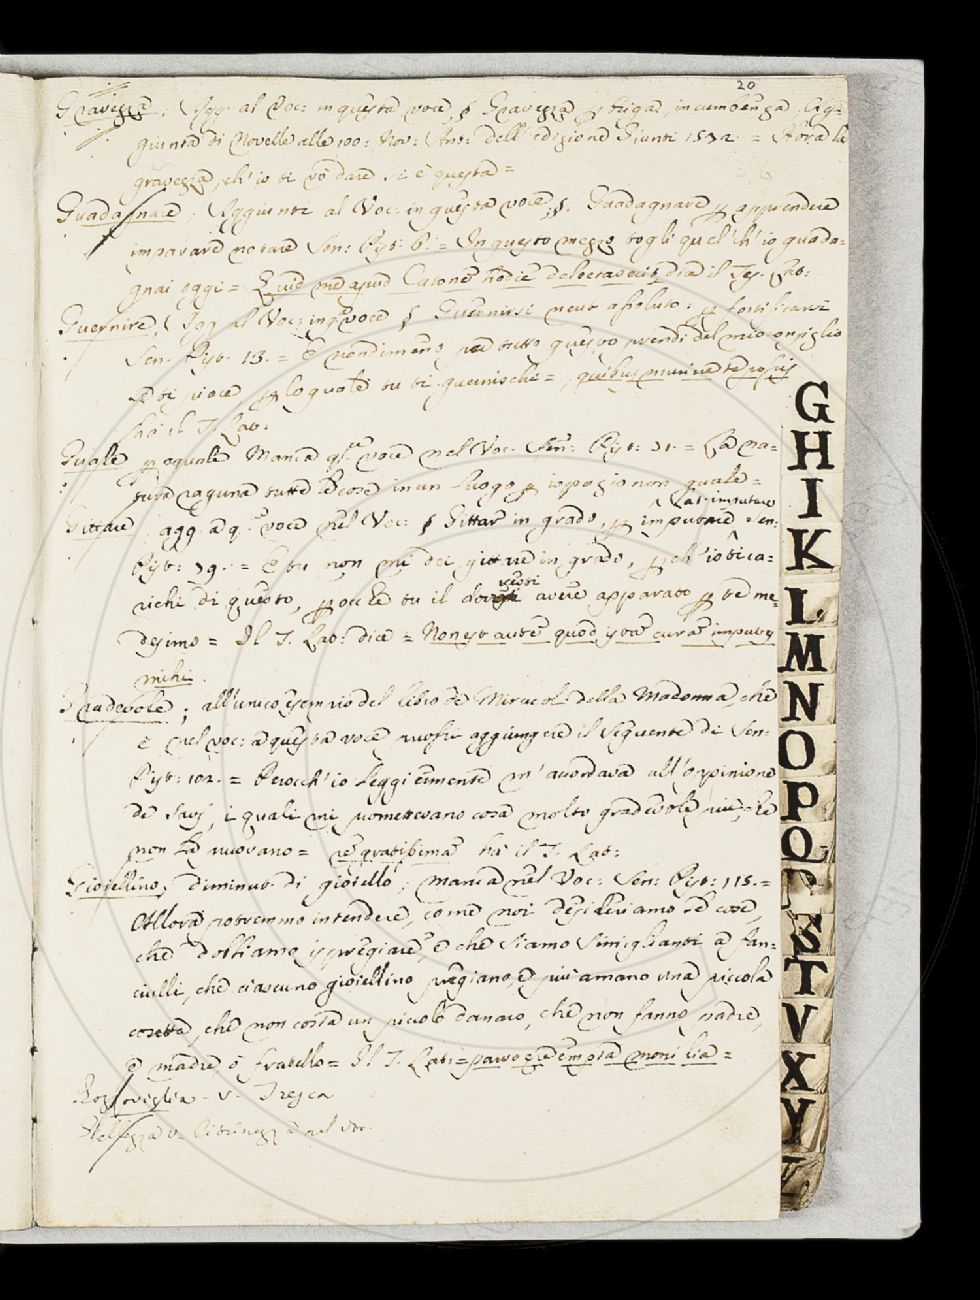 20
Gravezza; Agg. al Voc: in questa voce, § Gravezza p Briga, incumbenza. Ag-
giunta di Novelle alle 100: Nov: Ant: dell'edizione Giunti 1572. = Hora la
gravezza, ch'io ti vo dare si è questa =
Guadagnare; Aggiunti al Voc: in questa voce, §. Guadagnare p apprendere
imparare notare Sen: Pist: 6. = In questo mezzo togli quel ch'io guada-
gnai oggi = Quid me apud Catonem hodie delectaverit dice il Tes. Lat:
Guernire, Agg al Voc: in q. voce § Guernirsi neut. assoluto: p fortificarsi
Sen. Pist. 13. = E nondimeno per tutto questo prendi del mio consiglio
se ti piace, p lo quale tu ti guernischi =, quibus munire te possis
ha il T. Lat:
Guale p eguale Manca q. voce nel Voc. Sen: Pist: 31. = La na-
tura raguna tutte le cose in un Luogo p
Gittare, agg. a q. voce nel Voc: § Gittar in grado, p imputare Sen:
Lat. imputare
Pist: 79. = E tu non mi dei gittare in grado, p ch'io ti ca-
richi di questo, p occhè tu il dovesti avere apparato p te me-
desimo = Il T. Lat: dice = Non est autem quod istam curam imputes
mihi.
Gradevole; all'unico esempio del libro de Miracoli della Madonna, che
è nel voc: a questa voce puossi aggiungere il seguente di Sen:
Pist: 102. = Perocch'io leggiermente m'accordava all'oppinione
de Savj, i quali mi promettevano cosa molto gradevole più, che
non la provano = rem gratissimam ha il T. Lat:
Gioiellino; diminut. di gioiello; manca nel Voc: Sen: Pist: 115. =
Allora potremmo intendere, come noi desideriamo le cose,
che dobbiamo ispregiare, e che siamo simiglianti a fan-
ciulli, che ciascuno gioiellino pregiano, e più amano una piccola
cosetta, che non costa un piccolo danaro, che non fanno padre,
e madre o fratello = Il T. Lat: = parvo ære empta monilia =
v. Tresca
nel Voc.
G
H
I
K
L
M
N
O
P
Q
R
S
T
V
X
Y
Z